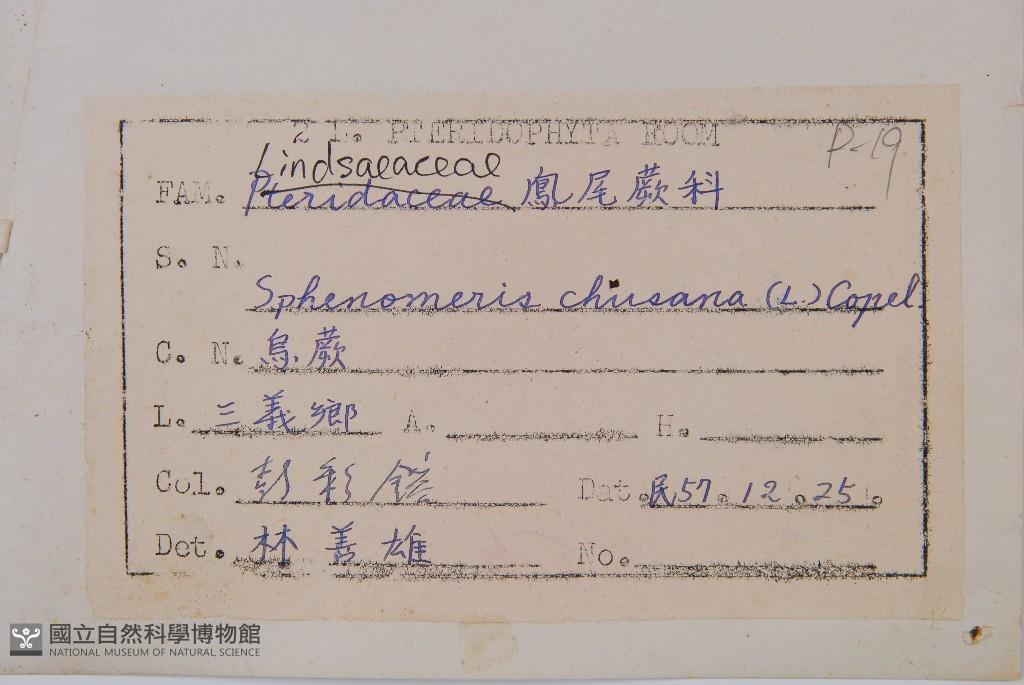 2 L. PTERIDOPHYTA ROOM
P-19
Lindsaeaceae
FAM. Pteridaceae 鳳尾蕨科
S. N.
Sphenomeris chusana (L.) Copel.
C. N. 烏蕨
L. 三義鄉 A. H.
Col. 彭彩 Dat. 民57.12.25.
Det. 林善雄 No.
國立自然科學博物館
NATIONAL MUSEUM OF NATURAL SCIENCE